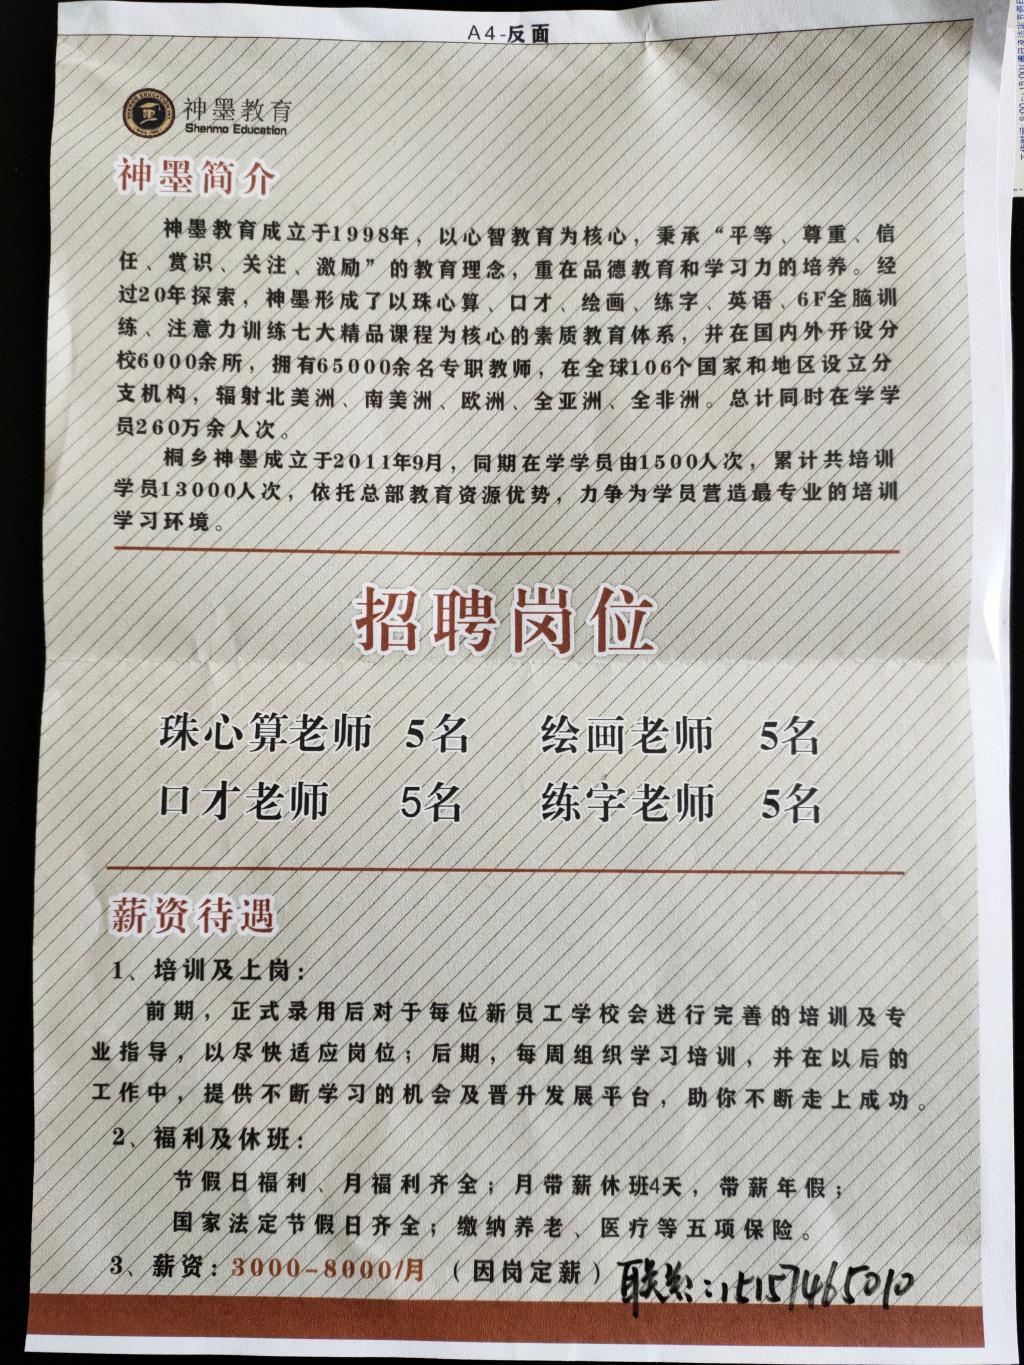 A4-反面
神墨教育
Shenmo Education
神墨简介
神墨教育成立于1998年，以心智教育为核心，秉承“平等、尊重、信
任、赏识、关注、激励”的教育理念，重在品德教育和学习力的培养。经
过20年探索，神墨形成了以珠心算、口才、绘画、练字、英语、6F全脑训
练、注意力训练七大精品课程为核心的素质教育体系，并在国内外开设分
校6000余所，拥有65000余名专职教师，在全球106个国家和地区设立分
支机构，辐射北美洲、南美洲、欧洲、全亚洲、全非洲。总计同时在学学
员260万余人次。
桐乡神墨成立于2011年9月，同期在学学员由1500人次，累计共培训
学员13000人次，依托总部教育资源优势，力争为学员营造最专业的培训
学习环境。
招聘岗位
珠心算老师 5名 绘画老师 5名
口才老师 5名 练字老师 5名
薪资待遇
1、培训及上岗：
前期，正式录用后对于每位新员工学校会进行完善的培训及专
业指导，以尽快适应岗位；后期，每周组织学习培训，并在以后的
工作中，提供不断学习的机会及晋升发展平台，助你不断走上成功。
2、福利及休班：
节假日福利、月福利齐全；月带薪休班4天，带薪年假；
国家法定节假日齐全；缴纳养老、医疗等五项保险。
3、薪资：3000-8000/月 （因岗定薪）联系：15157465010